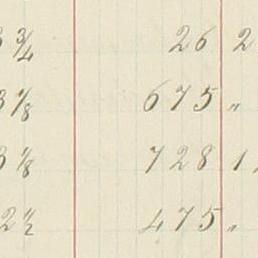 3 3/4 26 2
3 7/8 675 "
3 1/8 728 1
2 1/2 475 "